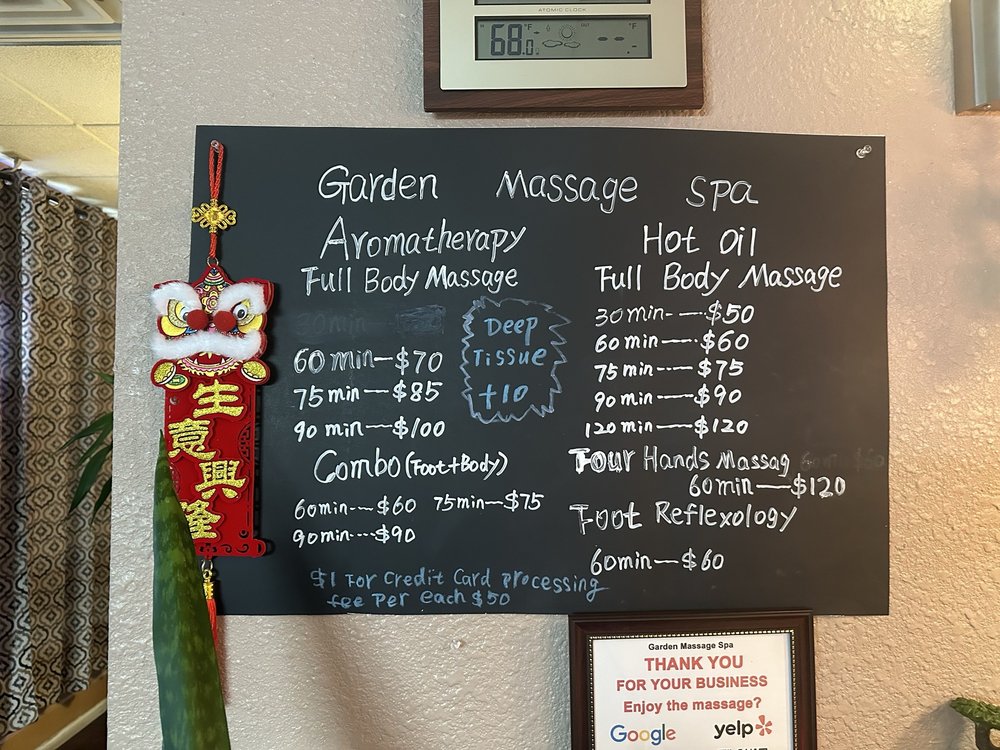 ATOMIC CLOCK
68.0 °F OUT °F
--.-
Garden Massage Spa
Aromatherapy
Full Body Massage
30min
60min—$70
75min—$85
90min—$100
Deep
Tissue
+10
Combo(Foot+Body)
60min---$60 75min—$75
90min----$90
$1 For Credit Card processing
fee Per each $50
Hot Oil
Full Body Massage
30min-—$50
60min—-$60
75min—-$75
90min—$90
120min—$120
Four Hands Massag
60min—$120
Foot Reflexology
60min—$60
生
意
興
隆
Garden Massage Spa
THANK YOU
FOR YOUR BUSINESS
Enjoy the massage?
Google yelp